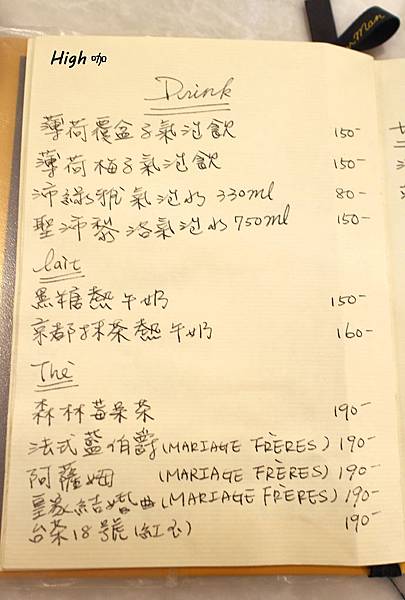 High 咖
Man
Drink
薄荷覆盆子氣泡飲 150-
薄荷梅子氣泡飲 150-
沛綠雅氣泡水 330ml 80-
聖沛黎洛氣泡水 750ml 150-
lait
黑糖熱牛奶 150-
京都抹茶熱牛奶 160-
Thè
森林莓果茶 190-
法式藍伯爵 (MARIAGE FRÈRES) 190-
阿薩姆 (MARIAGE FRÈRES) 190-
皇家結婚曲 (MARIAGE FRÈRES) 190-
台茶18號 (紅玉) 190-